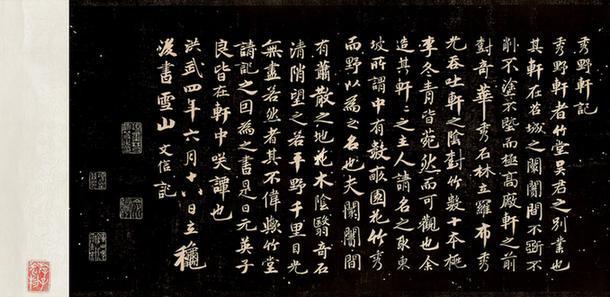 秀野軒記
秀野軒者竹堂吳君之別業也
其軒在茗城之闤闠間不斲不
削不塗不墍而極高厰軒之前
對奇華秀石林立羅布秀
光吞吐軒之陰對竹數十本極
李冬青皆菀然而可觀也余
造其軒〻之主人請名之取東
坡所謂中有數畝園花竹秀
而野以為之名也夫闤闠間
有蕭散之地花木陰翳奇石
清峭望之若平野千里目光
無盡若然者其不偉歟竹堂
請記之因為之書是日元英子
良皆在軒中咲譚也
洪武四年六月十八日立穐
後書雪山文信記